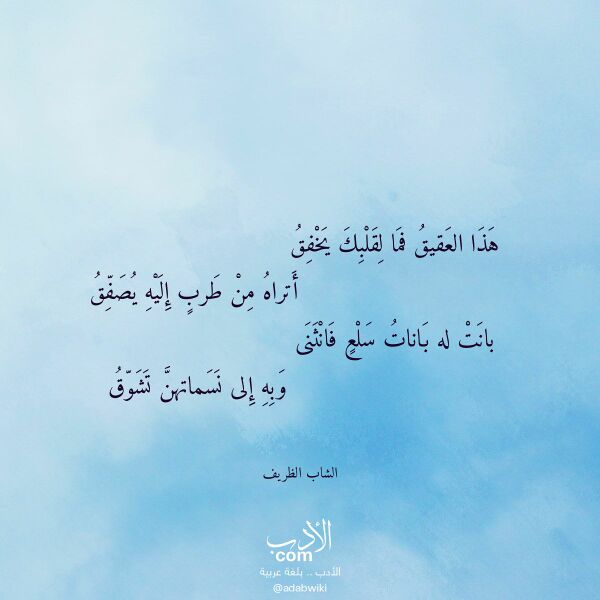 هَذَا العَقيقُ فمَا لِقَلْبِكَ يَخْفِقُ
أَتراهُ مِنْ طَربٍ إِلَيْهِ يُصَفِّقُ
بانَتْ له بَاناتُ سَلْعٍ فَانْثَنَى
وَبِهِ إِلى نَسَماتهنَّ تَشَوّقُ
الشاب الظريف
الأدب
com
الأدب .. بلغة عربية
@adabwiki